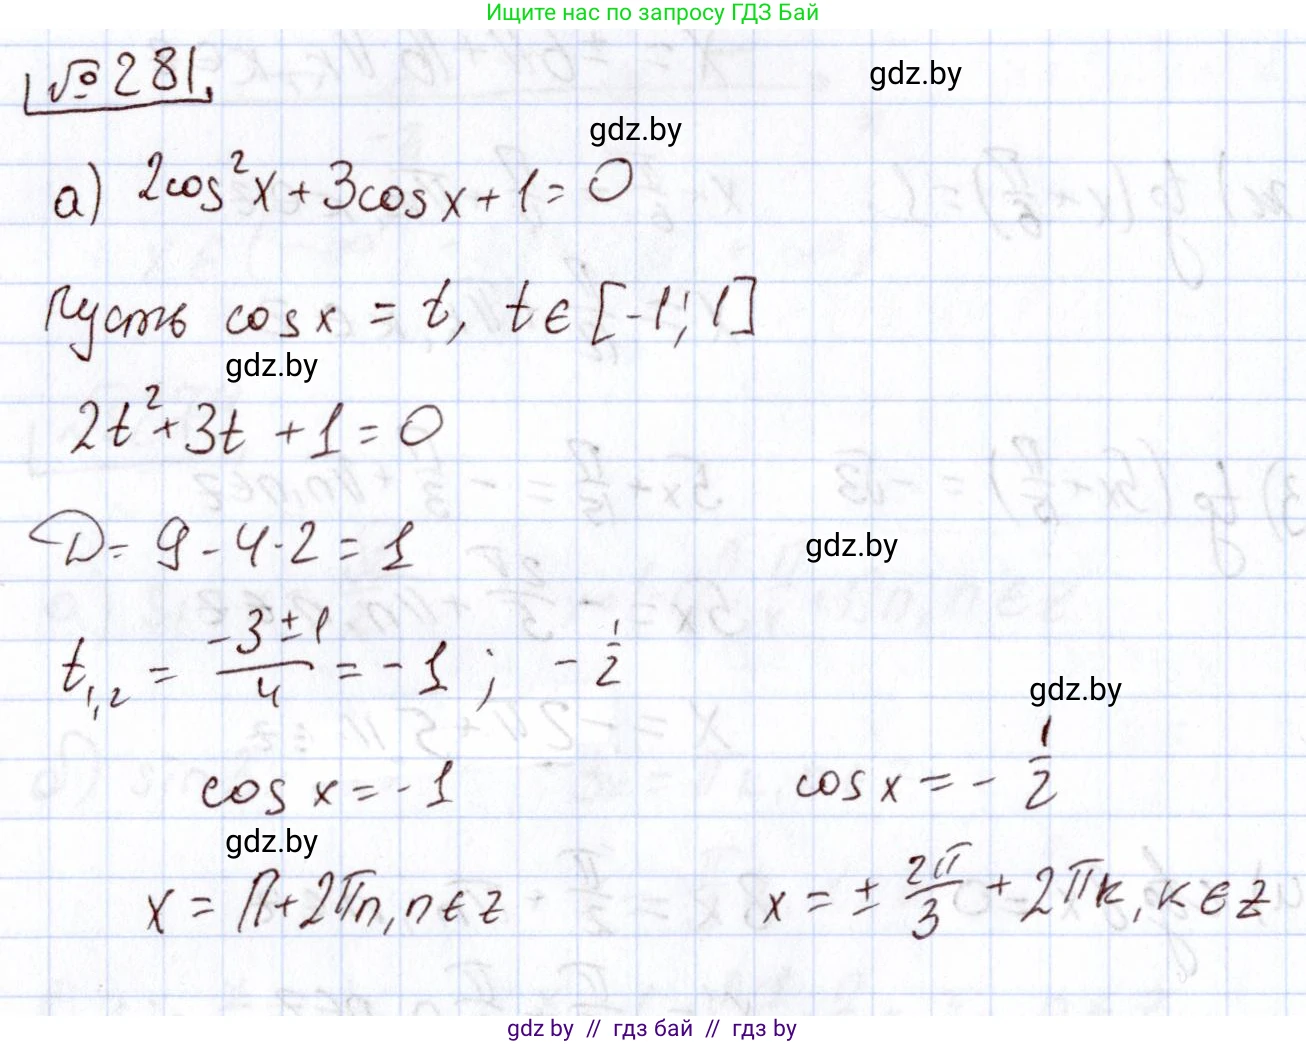 Ищите нас по запросу ГДЗ Бай
№281.
gdz.by
gdz.by
а) 2cos²x + 3cosx + 1 = 0
Пусть cosx = t, t ∈ [-1; 1]
gdz.by
2t² + 3t + 1 = 0
D = 9 - 4·2 = 1
gdz.by
t₁,₂ = (-3 ± 1)/4 = -1; -1/2
gdz.by
cosx = -1 cosx = -1/2
gdz.by
x = π + 2πn, n ∈ z x = ± 2π/3 + 2πk, k ∈ z
gdz by // гдз бай // гдз by